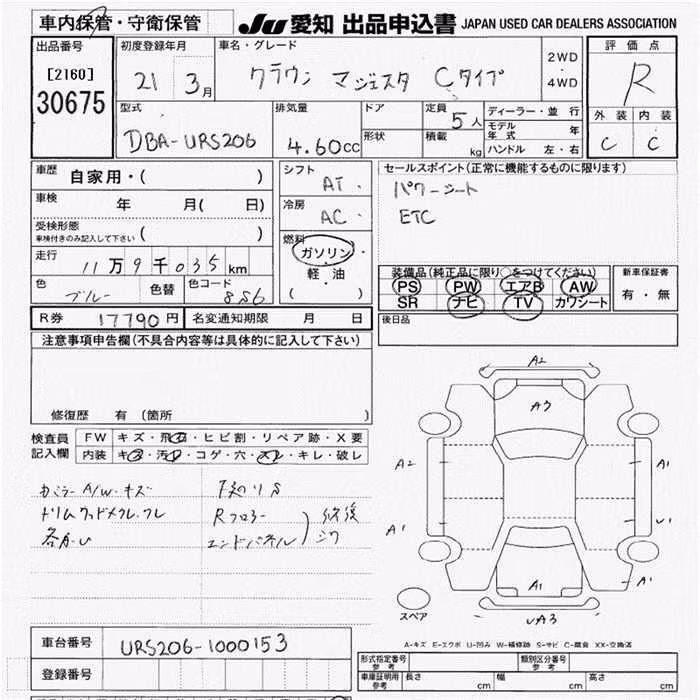 車内保管・守衛保管
JU 愛知 出品申込書 JAPAN USED CAR DEALERS ASSOCIATION
出品番号
[2160]
30675
初度登録年月
21 3月
車名・グレード
クラウン マジェスタ Cタイプ
2WD
・
4WD
評価点
R
外装 内装
C C
型式
DBA-URS206
排気量
4.60cc
ドア
形状
定員 5人
積載 kg
ディーラー・並行
モデル年式 年
ハンドル 左・右
車歴 自家用・( )
車検 年 月( 日)
受検形態
車検付きのみ記入して下さい ( )
走行
11万9千035km
色 ブルー 色替 色コード 8S6
シフト
AT
冷房
AC
燃料
ガソリン・
軽・油
( )
セールスポイント(正常に機能するものに限ります)
パワーシート
ETC
装備品(純正品に限り○をつけてください)
PS PW エアB AW
SR ナビ TV カワシート
新車保証書
有・無
後日品
R券 17790円 名変通知期限 月 日
注意事項申告欄(不具合内容等は具体的に記入して下さい)
修復歴 有(箇所 )
検査員
記入欄
FW キズ・飛石・ヒビ割・リペア跡・X要
内装 キズ・汚れ・コゲ・穴・スレ・キレ・破レ
A/W・キズ
Rフロアー
エンドパネル
修後
A2
A3
A2
A1
A1
A1
A1
スペア
A-キズ E-エクボ U-凹み W-補修跡 S-サビ C-腐食 XX-交換済
車台番号 URS206-1000153
登録番号
形式指定番号
参考
類別区分番号
参考
車庫証明用
参考
長さ cm 幅 cm 高さ cm